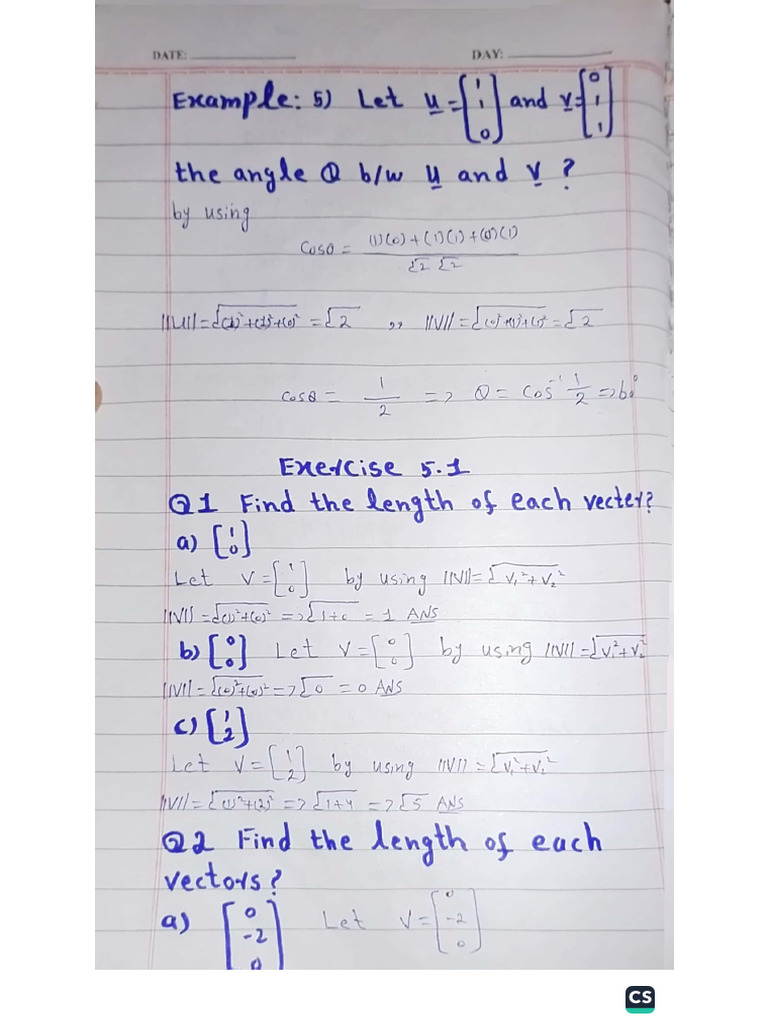 DATE: ____________ DAY: ____________
Example: 5) Let u = [1 1 0] and v = [0 1 1]
the angle θ b/w u and v ?
by using
Cosθ = (1)(0)+(1)(1)+(0)(1) / √2 √2
||U|| = √(1)²+(1)²+(0)² = √2 ,, ||V|| = √(0)²+(1)²+(1)² = √2
Cosθ = 1/2 => θ = Cos⁻¹ 1/2 => 60°
Exercise 5.1
Q1 Find the length of each vecter?
a) [1 0]
Let V = [1 0] by using ||V|| = √V₁²+V₂²
||V|| = √(1)²+(0)² => √1+0 = 1 ANS
b) [0 0] Let V = [0 0] by using ||V|| = √V₁²+V₂²
||V|| = √(0)²+(0)² => √0 = 0 ANS
c) [1 2]
Let V = [1 2] by using ||V|| = √V₁²+V₂²
||V|| = √(1)²+(2)² => √1+4 => √5 ANS
Q2 Find the length of each
vectors?
a) [0 -2 0] Let V = [0 -2 0]
CS